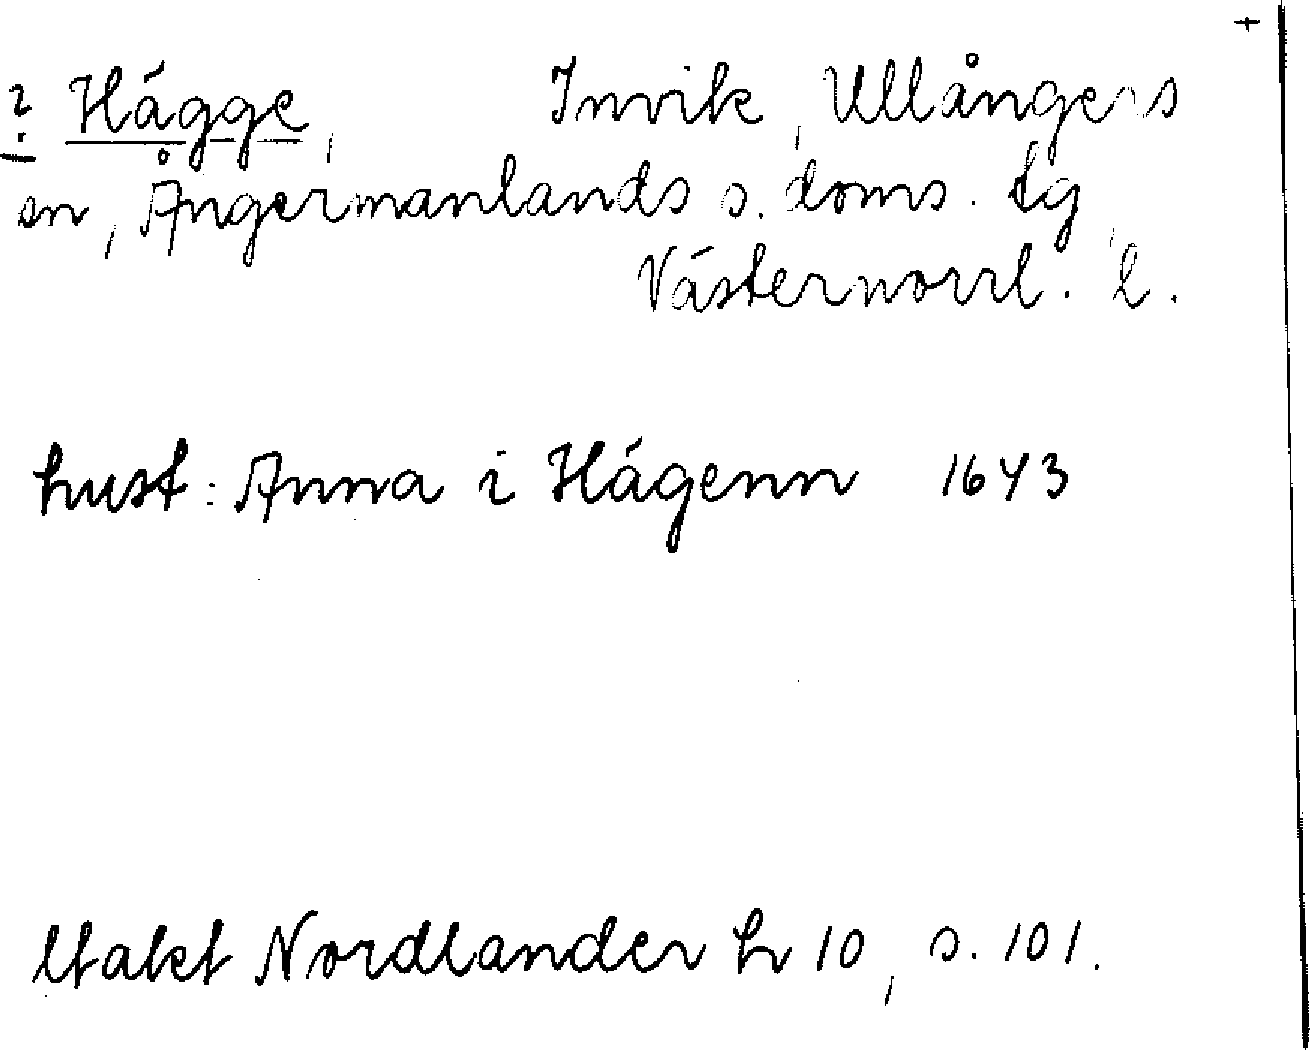 +
? Hägge, Invik, Ullångers
sn, Ångermanlands s. doms. tg,
Västernorrl. l.
hust: Anna i Hägenn 1643
Utakt Nordlander h 10, s. 101.